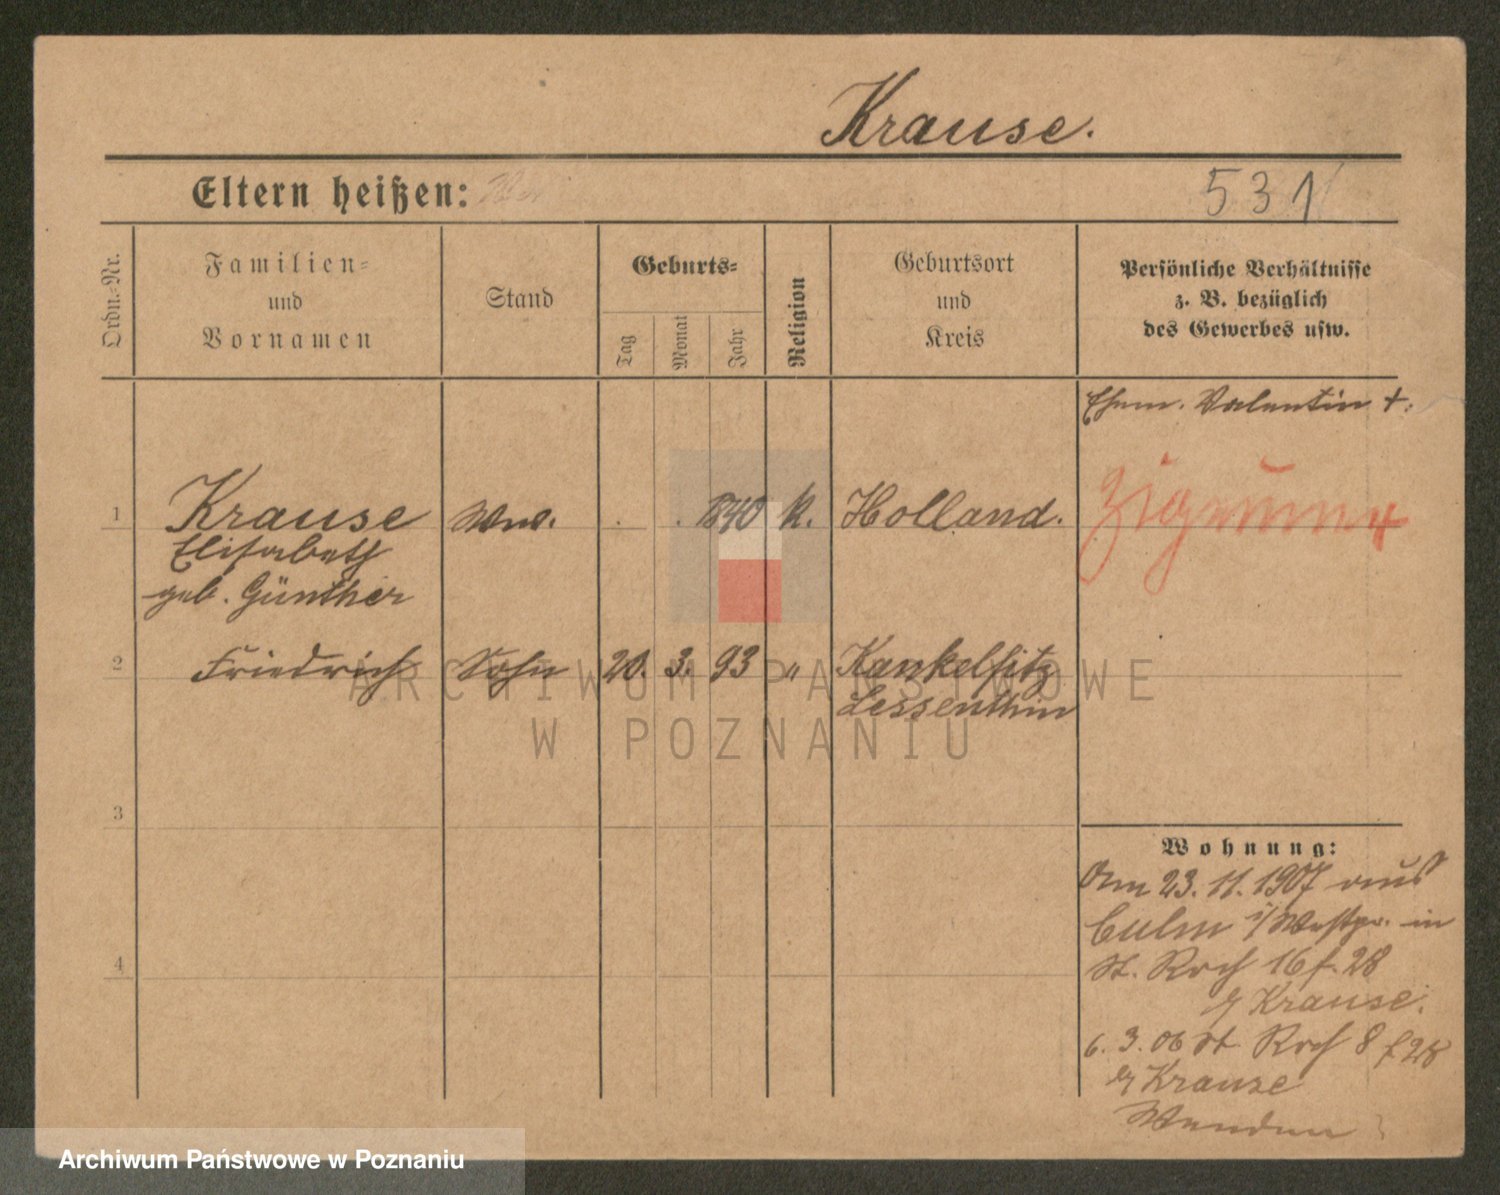 Krause.
Eltern heißen:
531
Ordn.-Nr.
Familien-
und
Vornamen
Stand
Geburts-
Tag
Monat
Jahr
Religion
Geburtsort
und
Kreis
Persönliche Verhältnisse
z. B. bezüglich
des Gewerbes usw.
Ehem. Valentin †.
1 Krause Wwe. 1840 k. Holland.
Elisabeth
geb. Günther
Zigeuner
2 Friedrich Sohn 20. 3. 93 " Kankelfitz
Lessenthin
3
4
Wohnung:
Am 23. 11. 1907 aus
Culm i/Westpr. in
St. Roch 16 f. 28
Krause.
6. 3. 06 St. Roch 8 f 28
Krause
ARCHIWUM PAŃSTWOWE
W POZNANIU
Archiwum Państwowe w Poznaniu